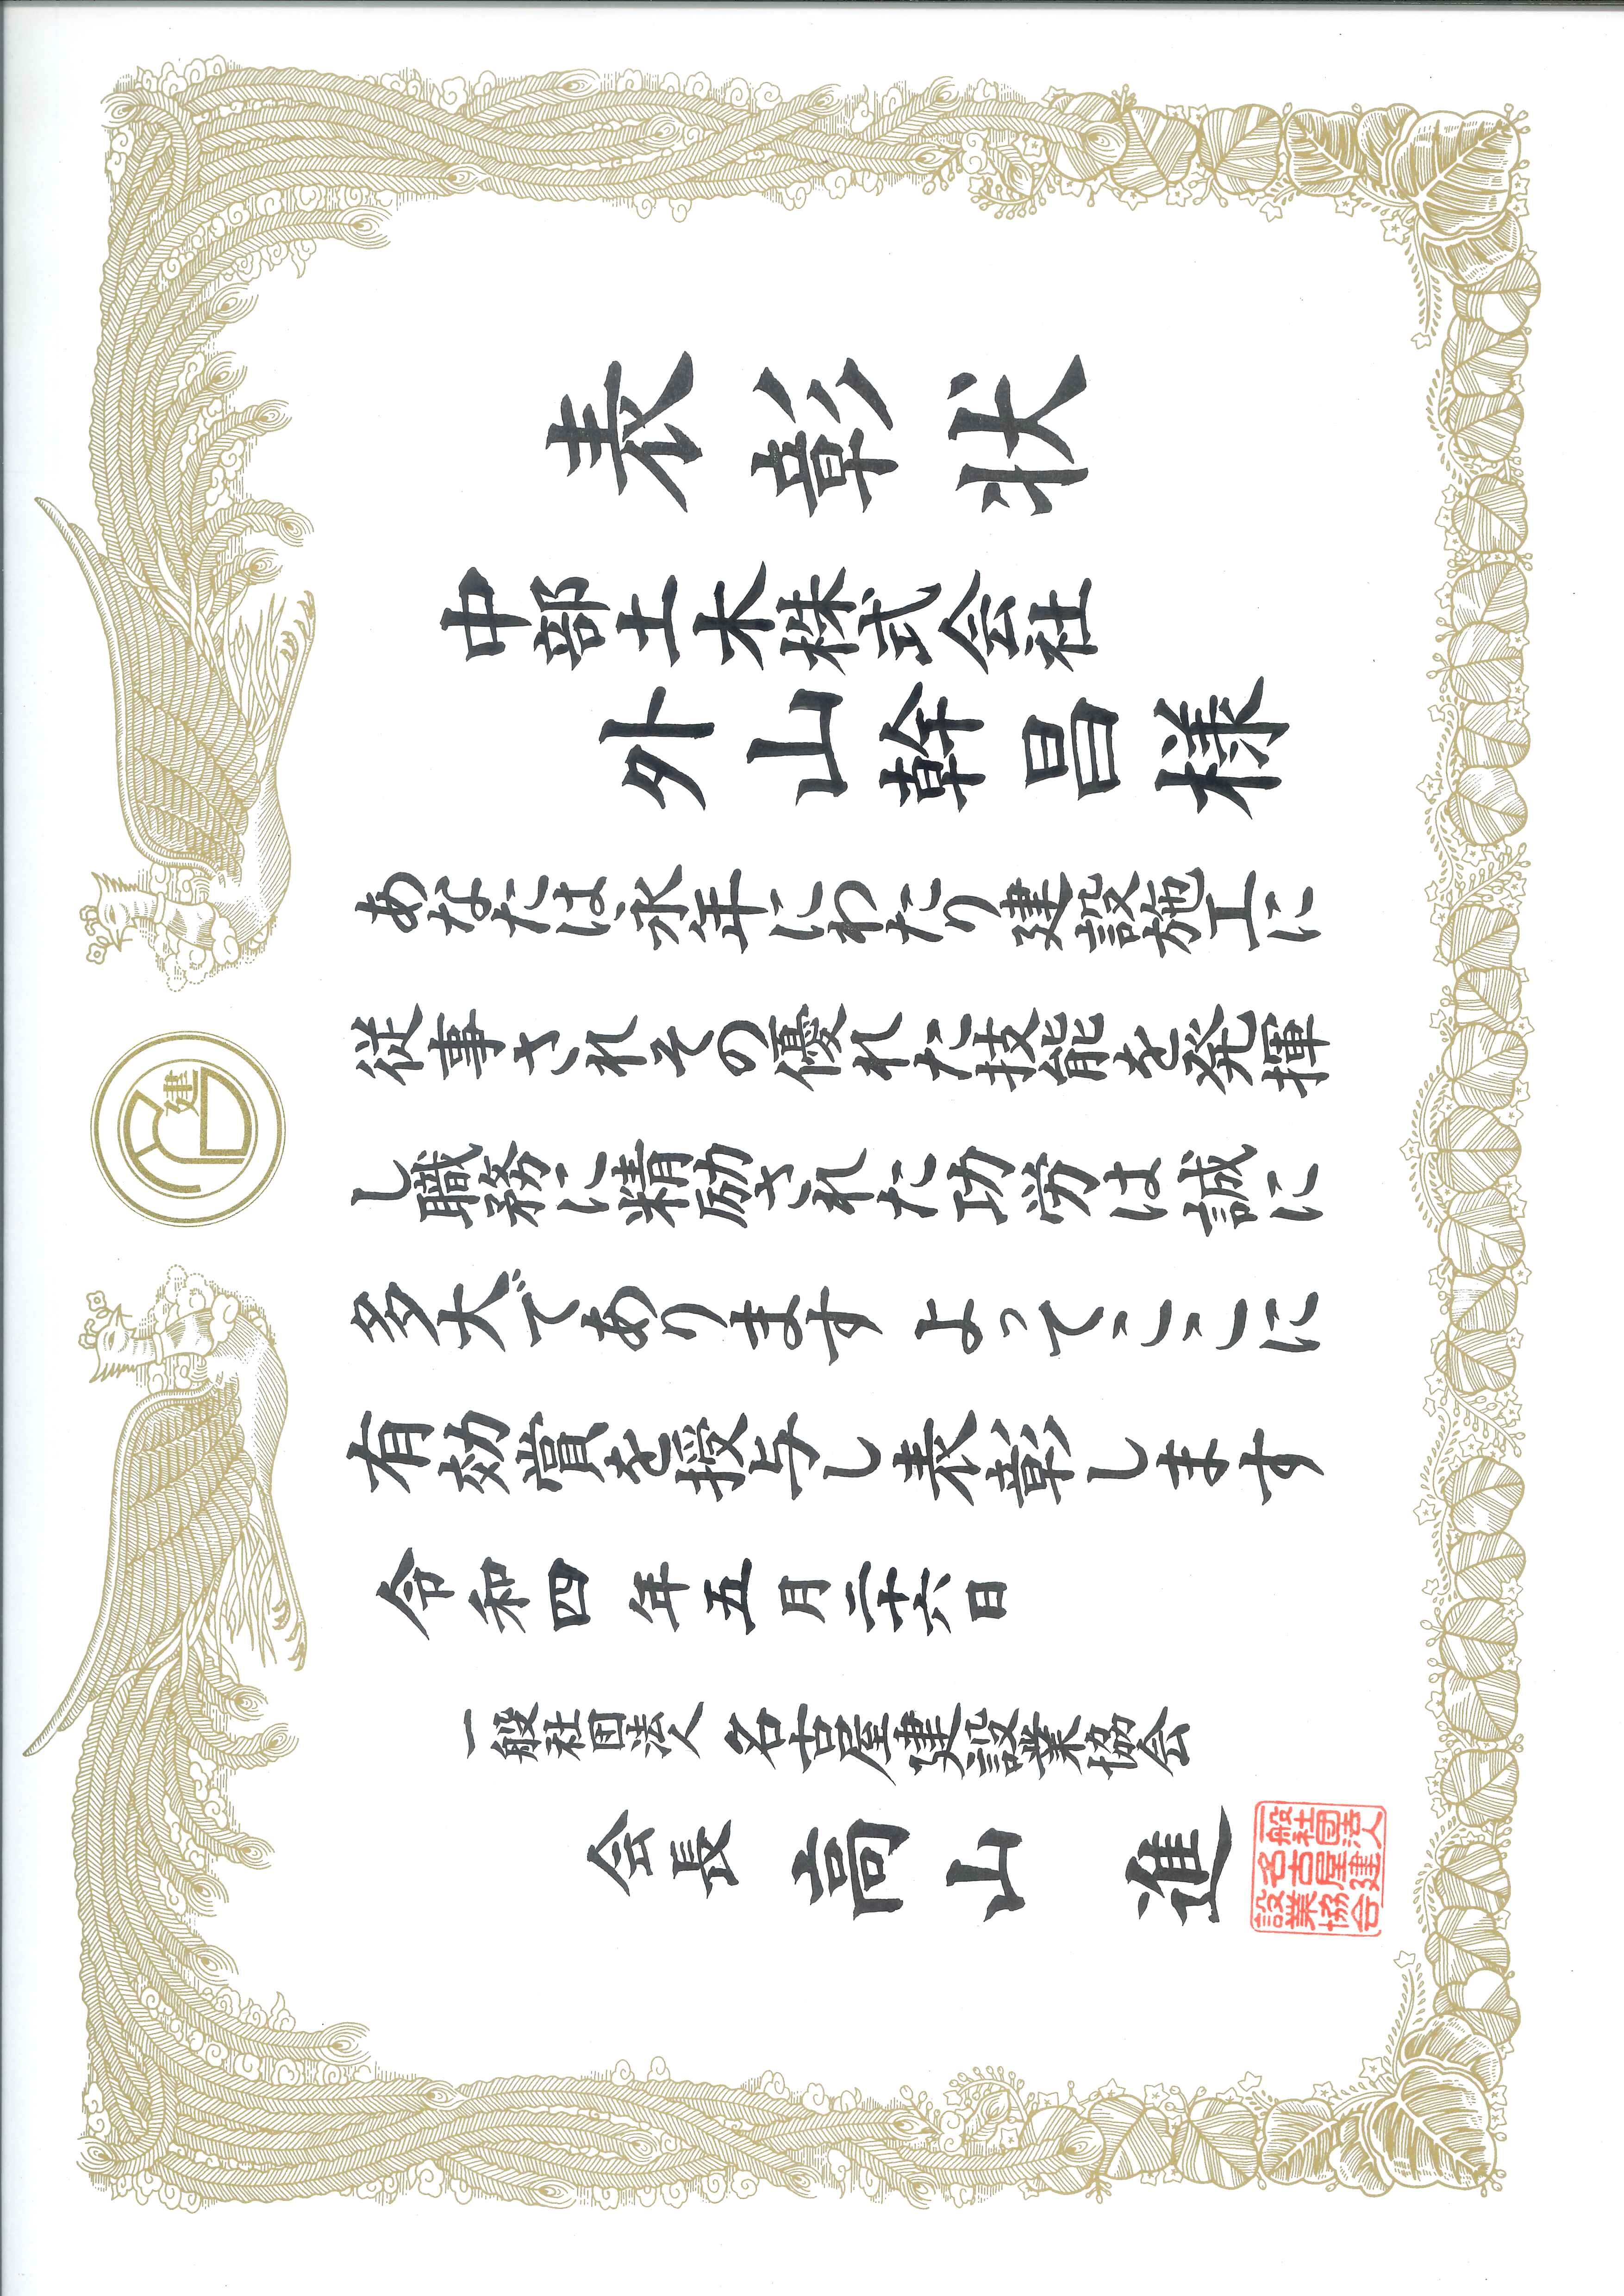 表彰状
中部土木株式会社
外山幹昌様
あなたは永年にわたり建設施工に
従事されその優れた技能を発揮
し職務に精励された功労は誠に
多大であります よってここに
有効賞を授与し表彰します
令和四年五月二十六日
一般社団法人 名古屋建設業協会
会長 高山 進
一般社団法人
名古屋建
設業協会
建